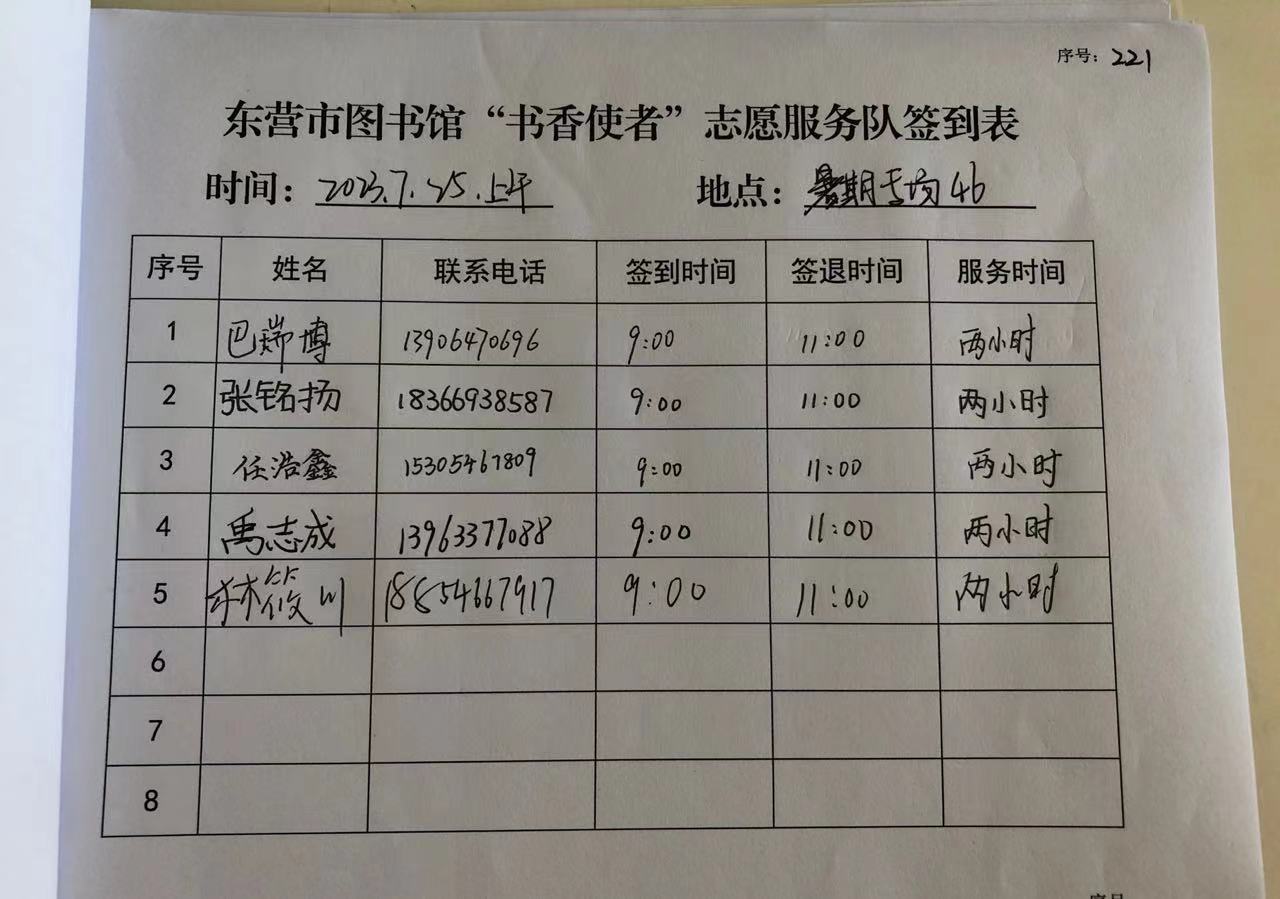 序号：221
东营市图书馆“书香使者”志愿服务队签到表
时间：2023.7.25.上午 地点：暑期专场46
序号 姓名 联系电话 签到时间 签退时间 服务时间
1 巴瑞博 13906470696 9:00 11:00 两小时
2 张铭扬 18366938587 9:00 11:00 两小时
3 任浩鑫 15305467809 9:00 11:00 两小时
4 禹志成 13963377088 9:00 11:00 两小时
5 林筱川 18854667917 9:00 11:00 两小时
6
7
8